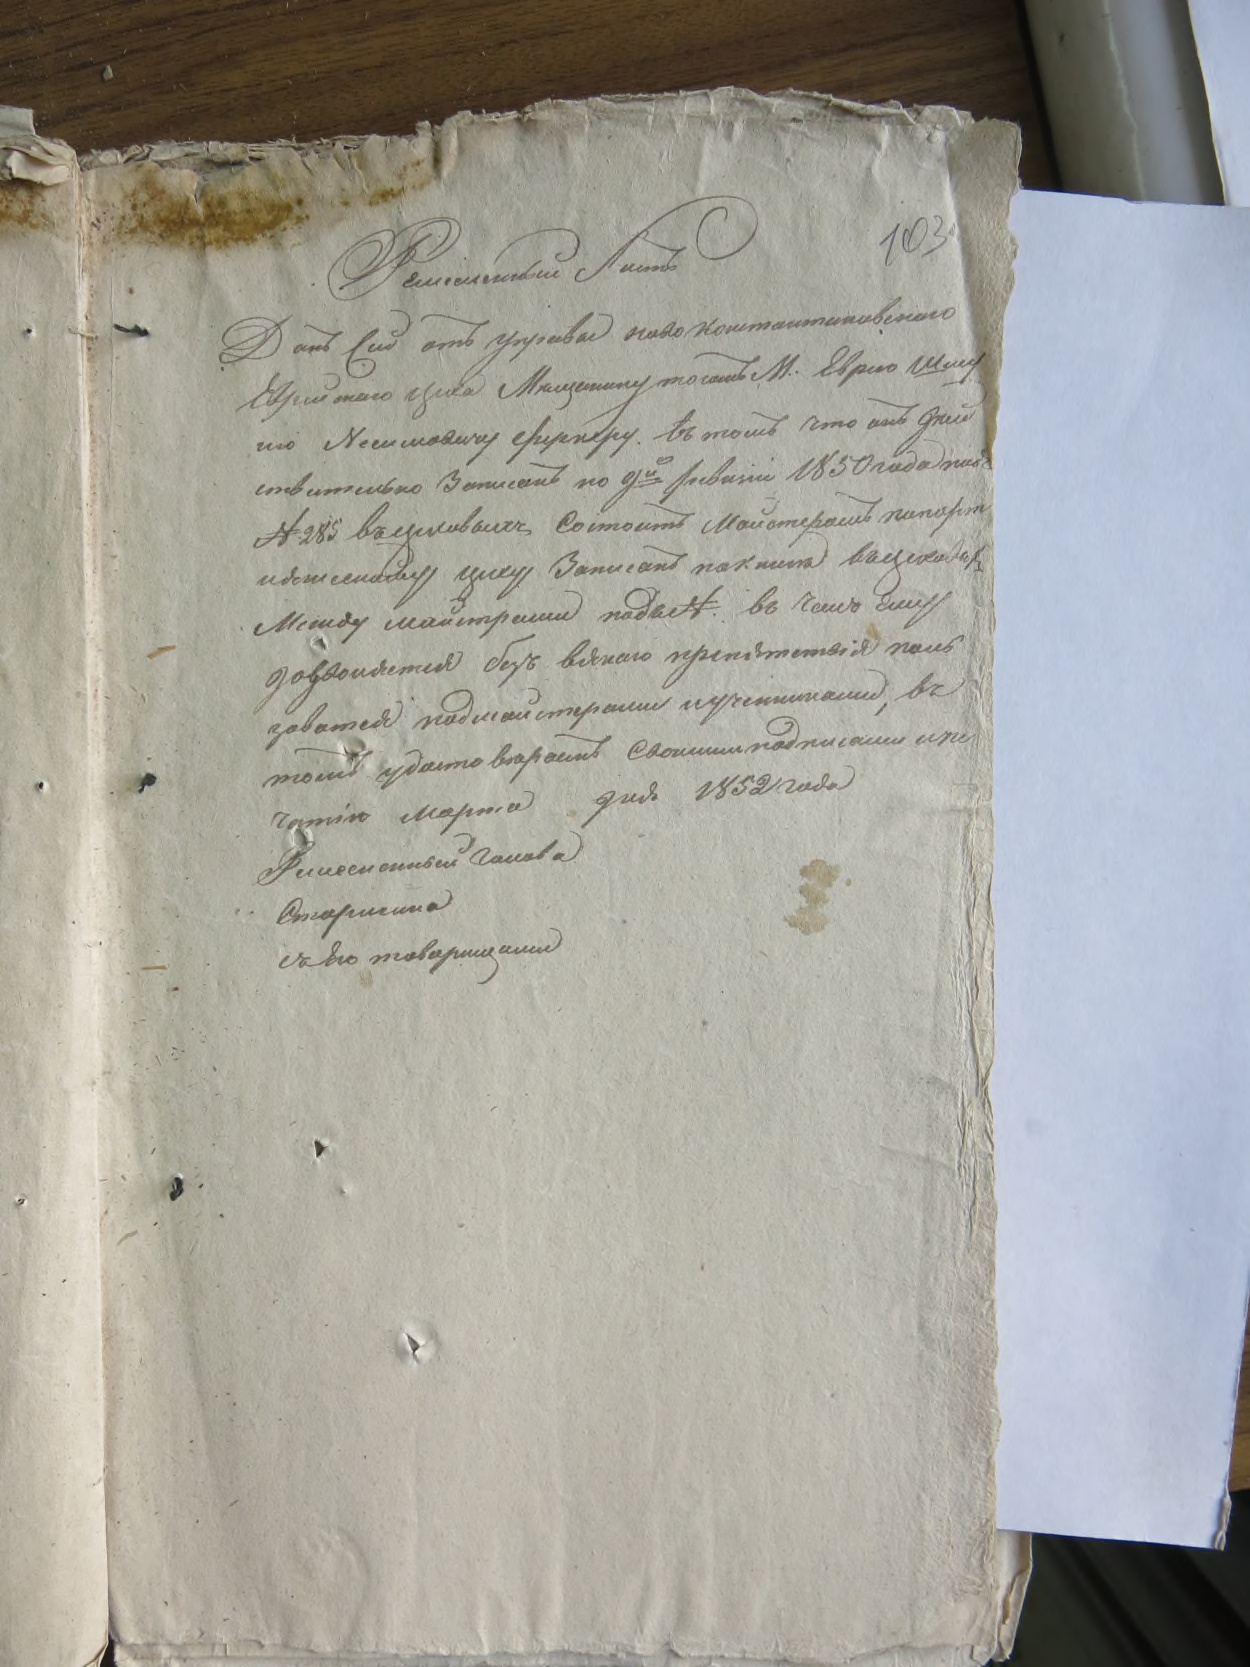 103
Ремесленный Листъ
Данъ Сей отъ управы ново константиновского
Еврейского цеха Мещанину тогожъ М. Еврею Шму
лю Хеимовичу Ферлеру. въ томъ что онъ дей
ствительно Записанъ по 9й ревизіи 1850 года подъ
№ 285 въцеховыхъ Состоитъ Майстеромъ попорт
няжескому цеху Записанъ покниге въцеховыхъ
Между майстрами подъ№. въ чемъ ему
дозволяется безъ всякаго препятствія поль
зоватся подмайстрами иучениками, въ
томъ удостоверяемъ Своимиподписами ипе
чатію Марта дня 1852 года
Ремесленный голова
Старшина
съ Его товарищами